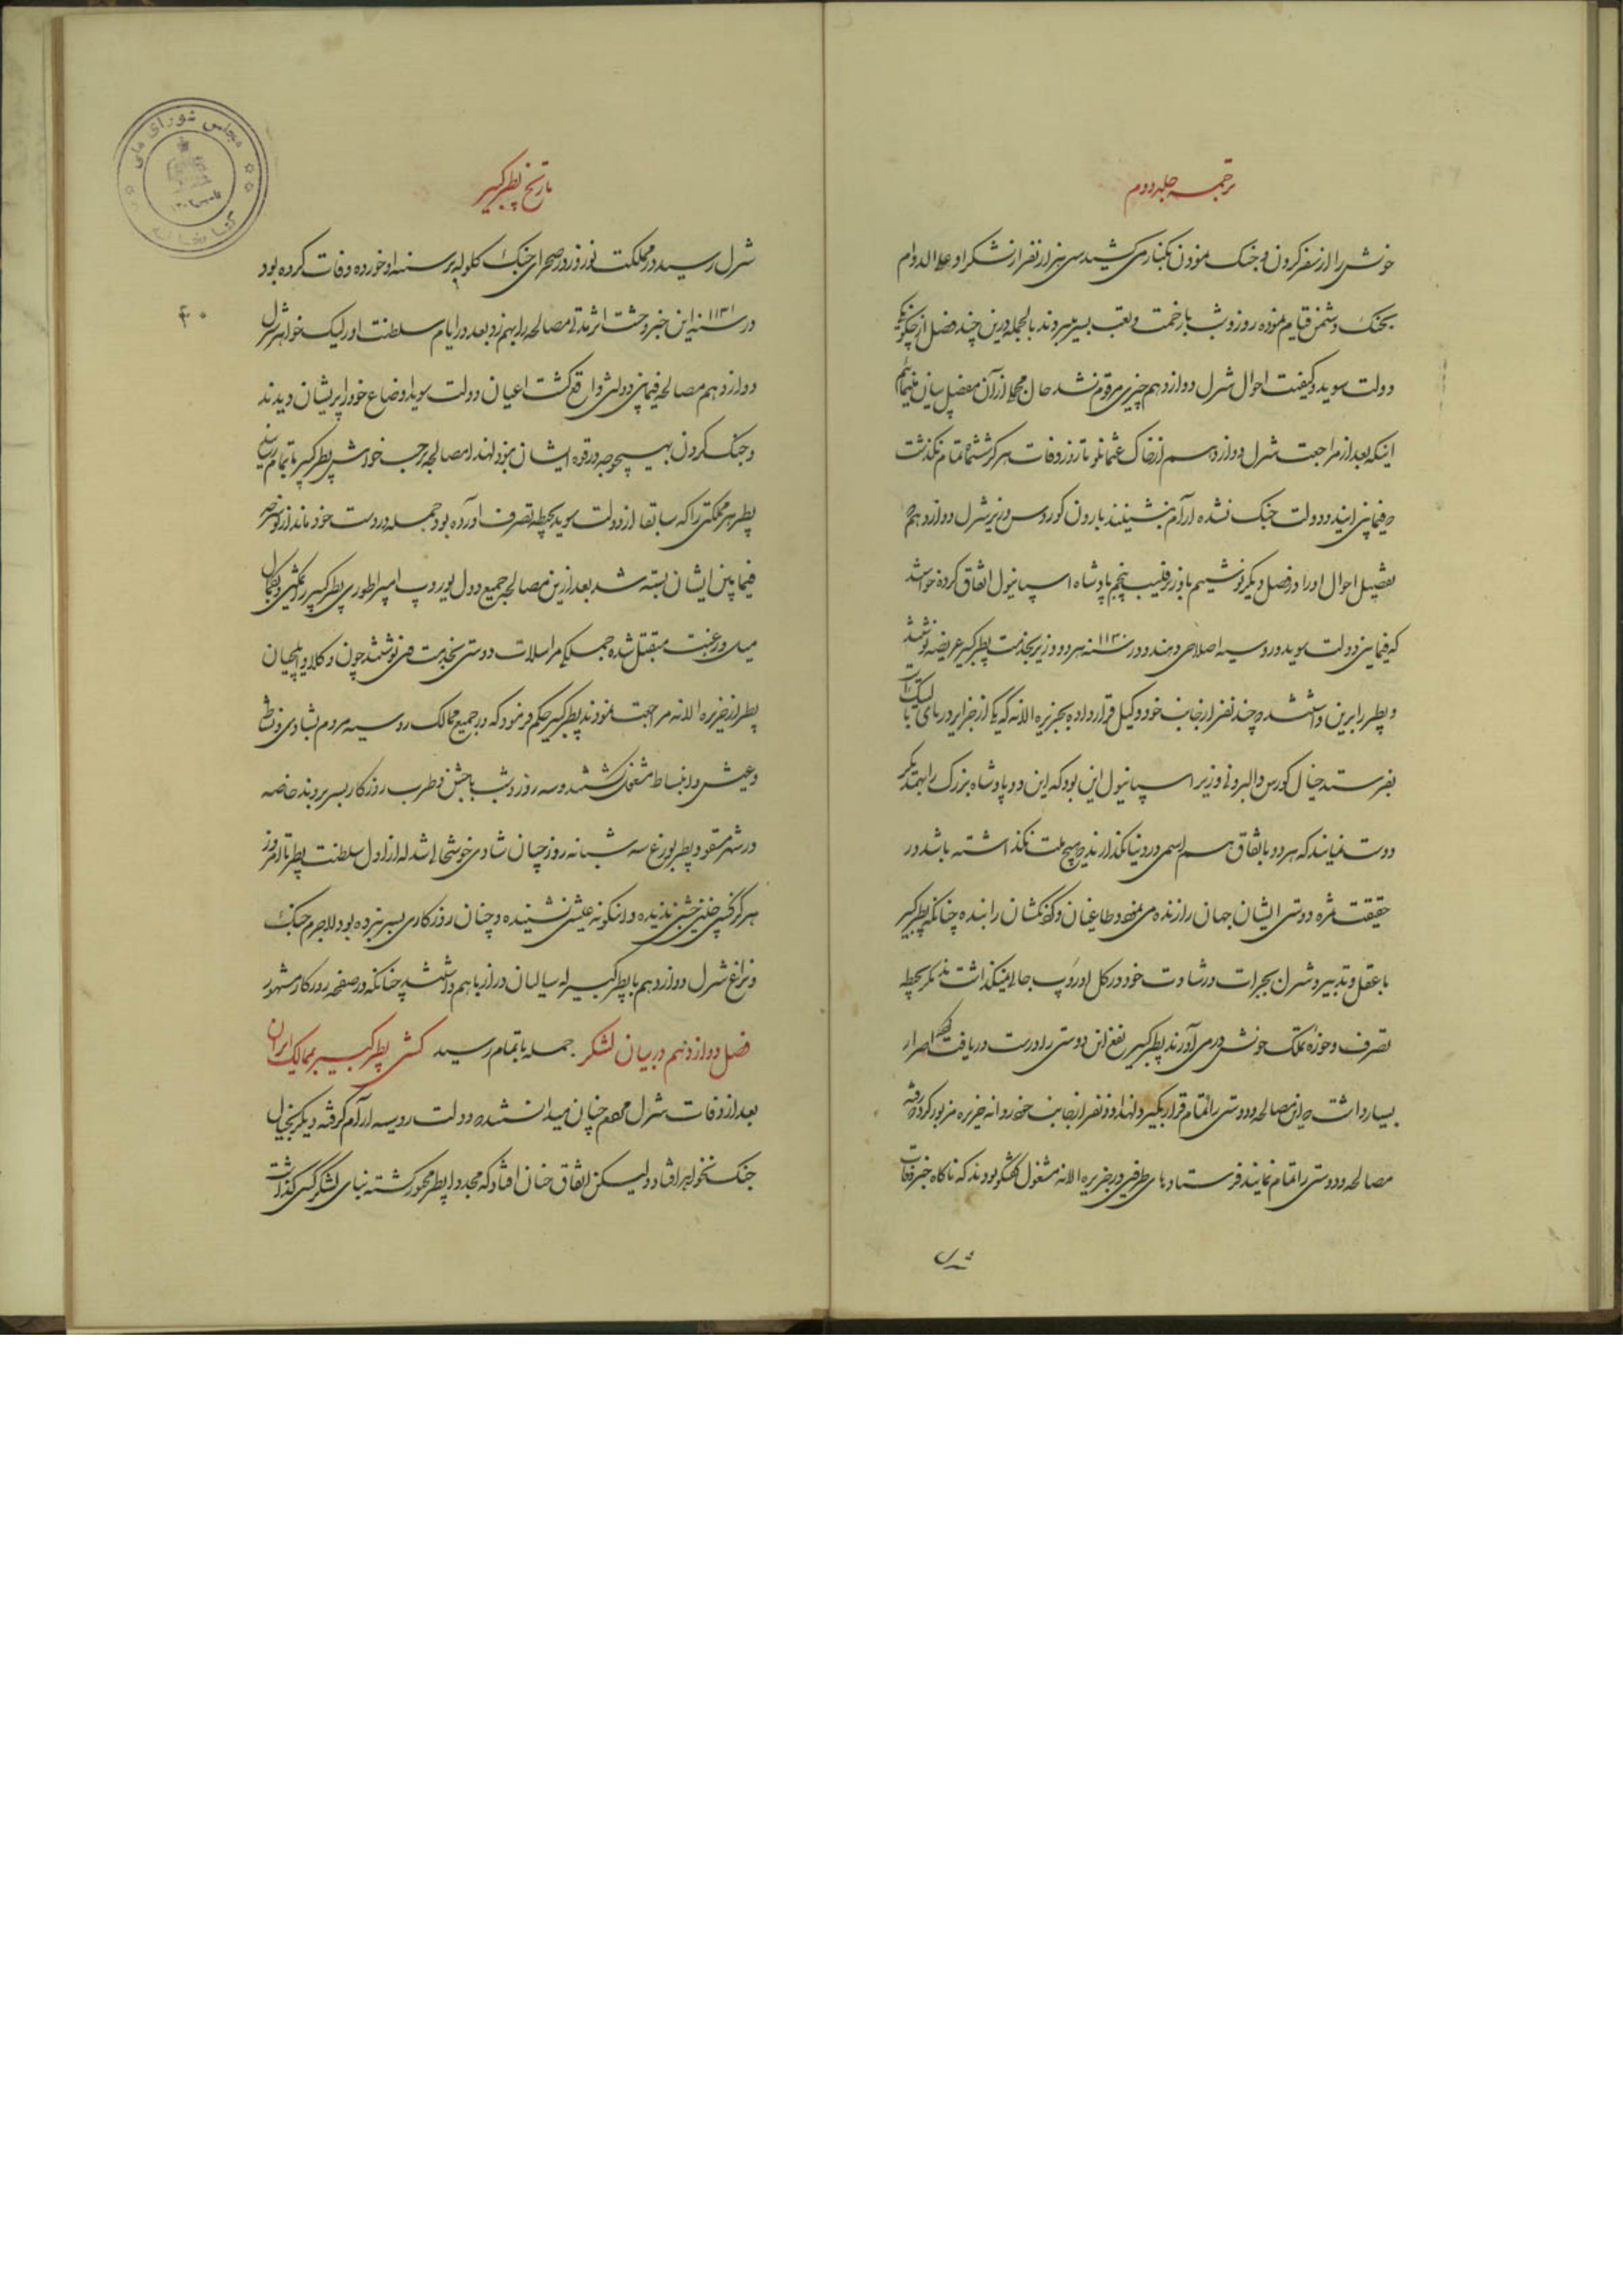 ترجمه جلد دوم
خویش را از سفر کردن و جنک نمودن بکنار می کشید سی هزار نفر از لشکر او علی الدوام
بجنک دشمن قیام نموده روز و شب با زحمت و تعب بسر میبردند بالجمله درین چند فصل از چکونکی
دولت سوید و کیفیت احوال شرل دوازدهم چیزی مرقوم نشد حال مجملی از آن مفصل بیان مینمائیم
اینکه بعد از مراجعت شرل دوازدهم از خاک عثمانلو تا روز وفات هرکز ششماه تمام نکذشت
که فیمابین ایند و دولت جنک نشده آرام بنشینند بارون کورس وزیر شرل دوازدهم که
تفصیل احوال او را در فصل دیکر نوشتیم با وزیر فلیب پنجم پادشاه اسپانیول اتفاق کرده خواستند
که فیمابین دولت سوید و روسیه اصلاحی دهند و در سنه ۱۱۳۰ هر دو وزیر بخدمت پطر کبیر عریضه نوشتند
و پطر را برین داشتند که چند نفر از جانب خود وکیل قرار داده بجزیره الانه که یکی از جزایر دریای بالتیک است
بفرستد خیال کورس و البرونی وزیر اسپانیول این بود که این دو پادشاه بزرک را با همدیکر
دوست نمایند که هر دو باتفاق هم اسمی در دنیا بکذارند که هیچ ملت نکذاشته باشد در
حقیقت ثمره دوستی ایشان جهان را زنده می نمود و طاغیان و کردنکشان را بنده چنانکه پطر کبیر
با عقل و تدبیر و شرل بجرات و رشادت خود در کل اوروپ جائی نمیکذاشتند مکر بحیطه
تصرف و حوزه تملک خویش درمی آوردند پطر کبیر نفع این دوستی را درست دریافت کرده اصرار
بسیار داشت که این مصالحه و دوستی را تمام قرار بکیرد لهذا دو نفر از جانب خود روانه جزیره مزبور کرده که رفته
مصالحه و دوستی را تمام نمایند فرستادهای طرفین در جزیره الانه مشغول کفتکو بودند که ناکاه خبر وفات
شرل
تاریخ پطر کبیر
۴۰
شرل رسید در مملکت نوروز در صحرای جنک کلوله بر سینه او خورده وفات کرده بود
در سنه ۱۱۳۱ این خبر وحشت اثر بنای مصالحه را بهم زد بعد در ایام سلطنت اورلیک خواهر شرل
دوازدهم مصالحه فیمابین دولتین واقع کشت اعیان دولت سوید اوضاع خود را پریشان دیدند
و جنک کردن بهیچوجه در قوه ایشان نبود لهذا مصالحه بر حسب خواهش پطر کبیر باتمام رسانید
پطر هر مملکتی را که سابقا از دولت سوید بحیطه تصرف آورده بود جمله در دست خود ماند
فیمابین ایشان بسته شد بعد ازین مصالحه جمیع دول یوروپ امپراطوری پطر کبیر را بکمال
میل و رغبت متقبل شده جملکی مراسلات دوستی بخدمت می نوشتند چون وکلا و ایلچیان
پطر از جزیره الانه مراجعت نمودند پطر کبیر حکم فرمود که در جمیع ممالک روسیه مردم بشادی و نشاط
و عیش و انبساط مشغول کشتند و سه روز و شب با جشن و طرب روزکار بسر بردند خاصه
در شهر مسقو و پطربورغ سه شبانه روز چنان شادی و خوشحالی شد که از اول سلطنت پطر تا آنروز
هرکز کسی چنین جشنی ندیده و اینکونه عیشی نشنیده و چنان روزکاری بسر نبرده بود لاجرم جنک
و نزاع شرل دوازدهم با پطر کبیر که سالیان دراز با هم داشتند چنانکه در صفحه روزکار مشهور
جمله باتمام رسید فصل دوازدهم در بیان لشکر کشی پطر کبیر بممالک ایران
بعد از وفات شرل مردم چنان میدانستند که دولت روسیه آرام کرفته دیکر بخیال
جنک نخواهد افتاد ولیکن اتفاق چنان افتاد که مجددا پطر مجبور کشته بنای لشکر کشی کذاشت